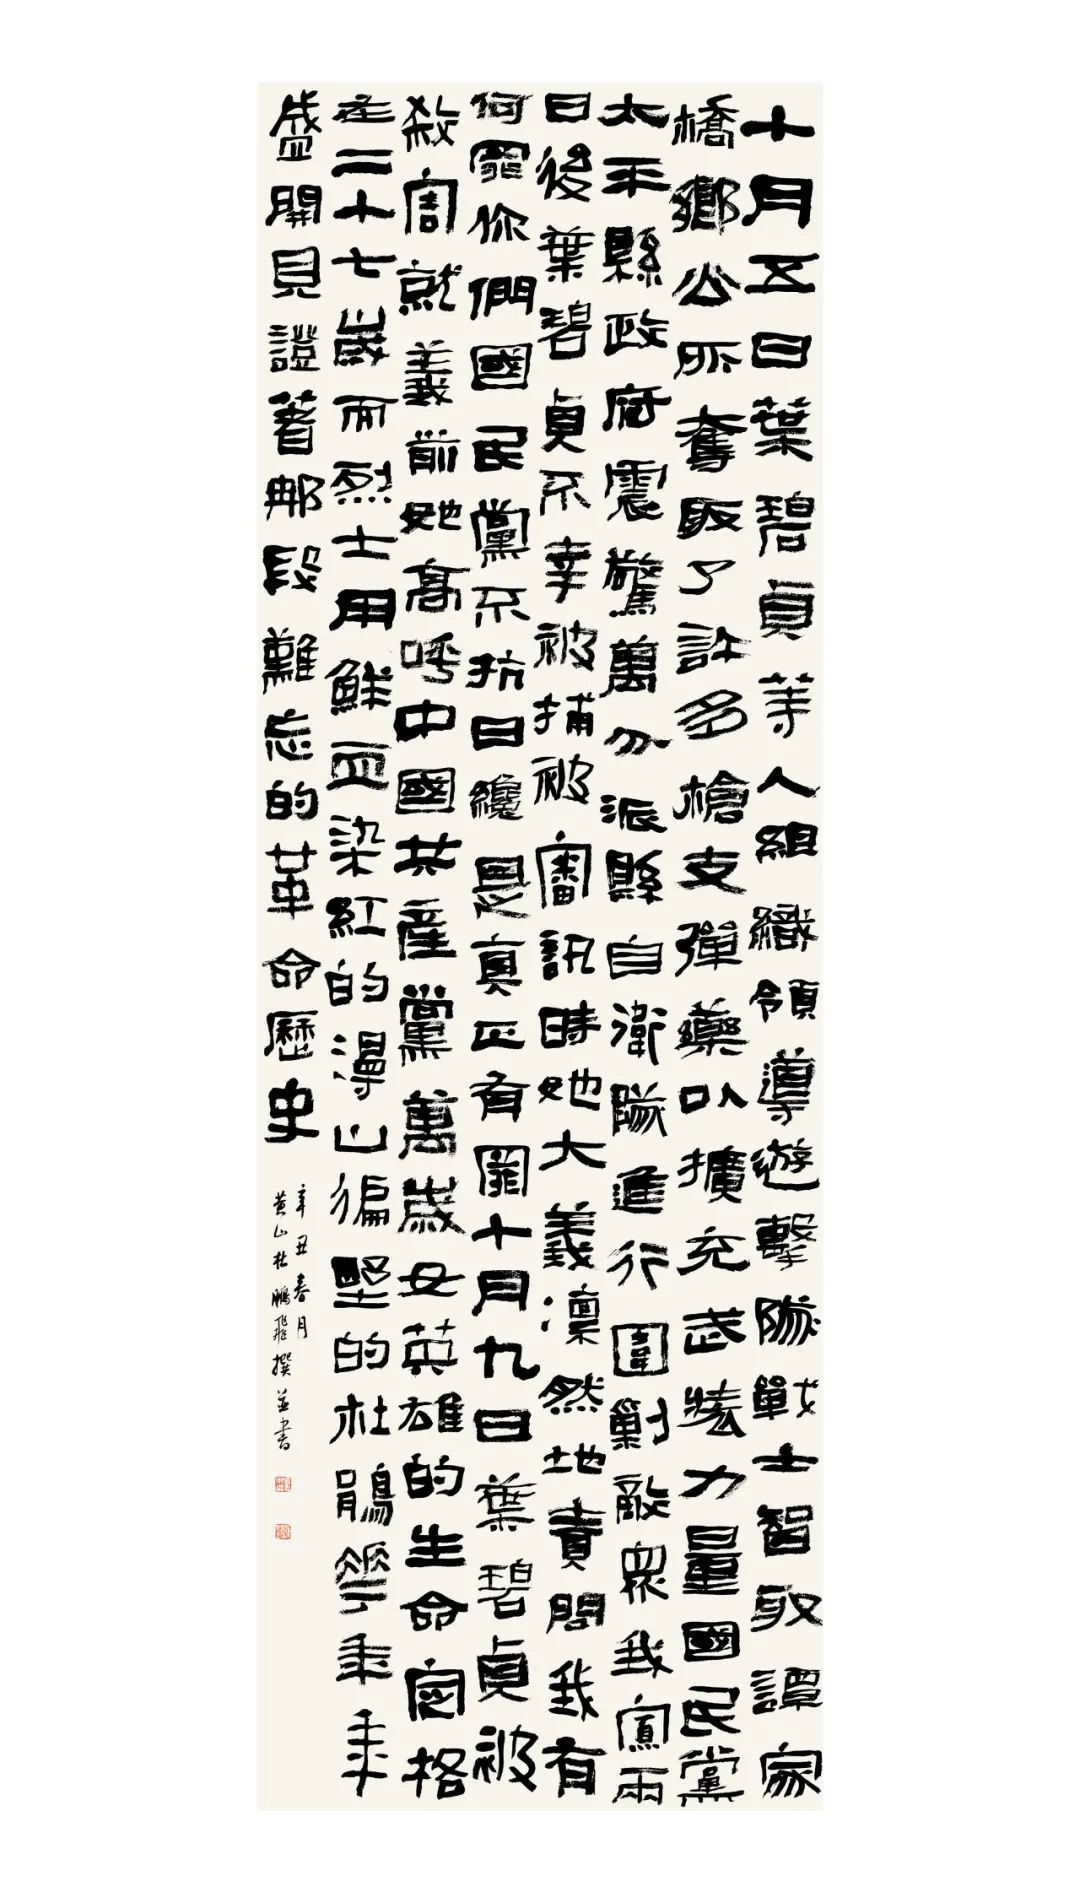 十月五日葉碧貞等人組織領導遊擊隊戰士智取譚家
橋鄉公所奪取了許多槍支彈藥以擴充武裝力量國民黨
太平縣政府震驚萬分派縣自衛隊進行圍剿敵眾我寡兩
日後葉碧貞不幸被捕被審訊時她大義凜然地責問我有
何罪你們國民黨不抗日纔是真正有罪十月九日葉碧貞被
殺害就義前她高呼中國共產黨萬歲女英雄的生命定格
在二十七歲而烈士用鮮血染紅的漫山徧壄的杜鵑花年年
盛開見證著那段難忘的革命歷史
辛丑春月
黃山杜鵬飛撰並書